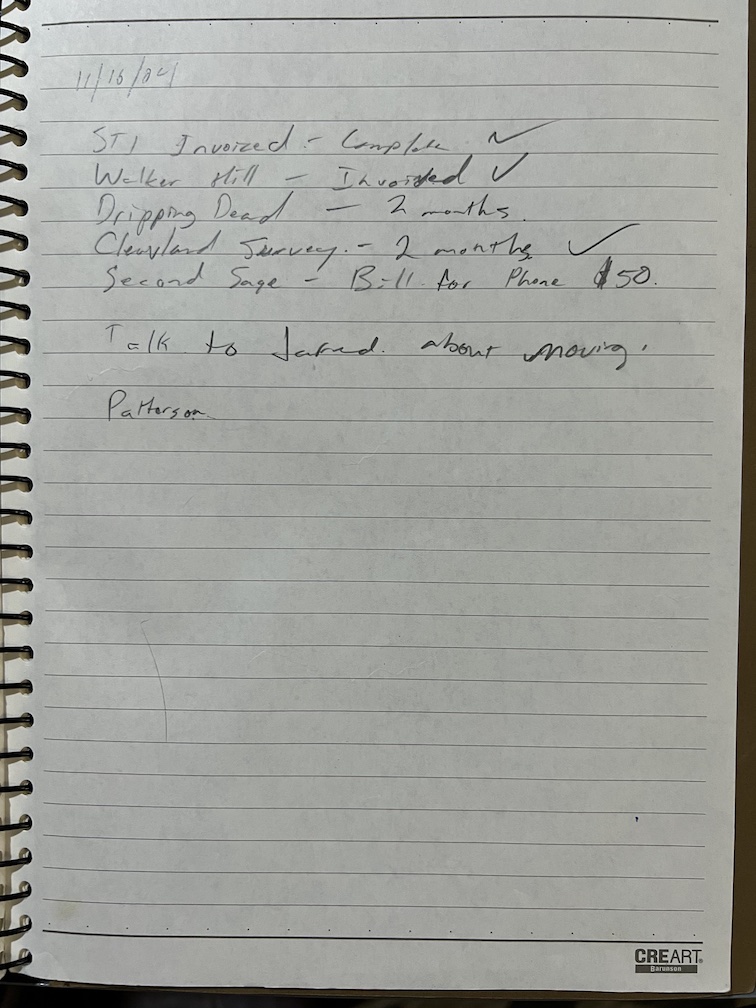 11/16/24
STI Invoiced - Complete ✓
Walker Hill - Invoiced ✓
Dripping Dead - 2 months.
Cleavland Survey. - 2 months ✓
Second Sage - Bill for Phone $50.
Talk to Jarred. about moving.
Patterson
CREART®
Barunson